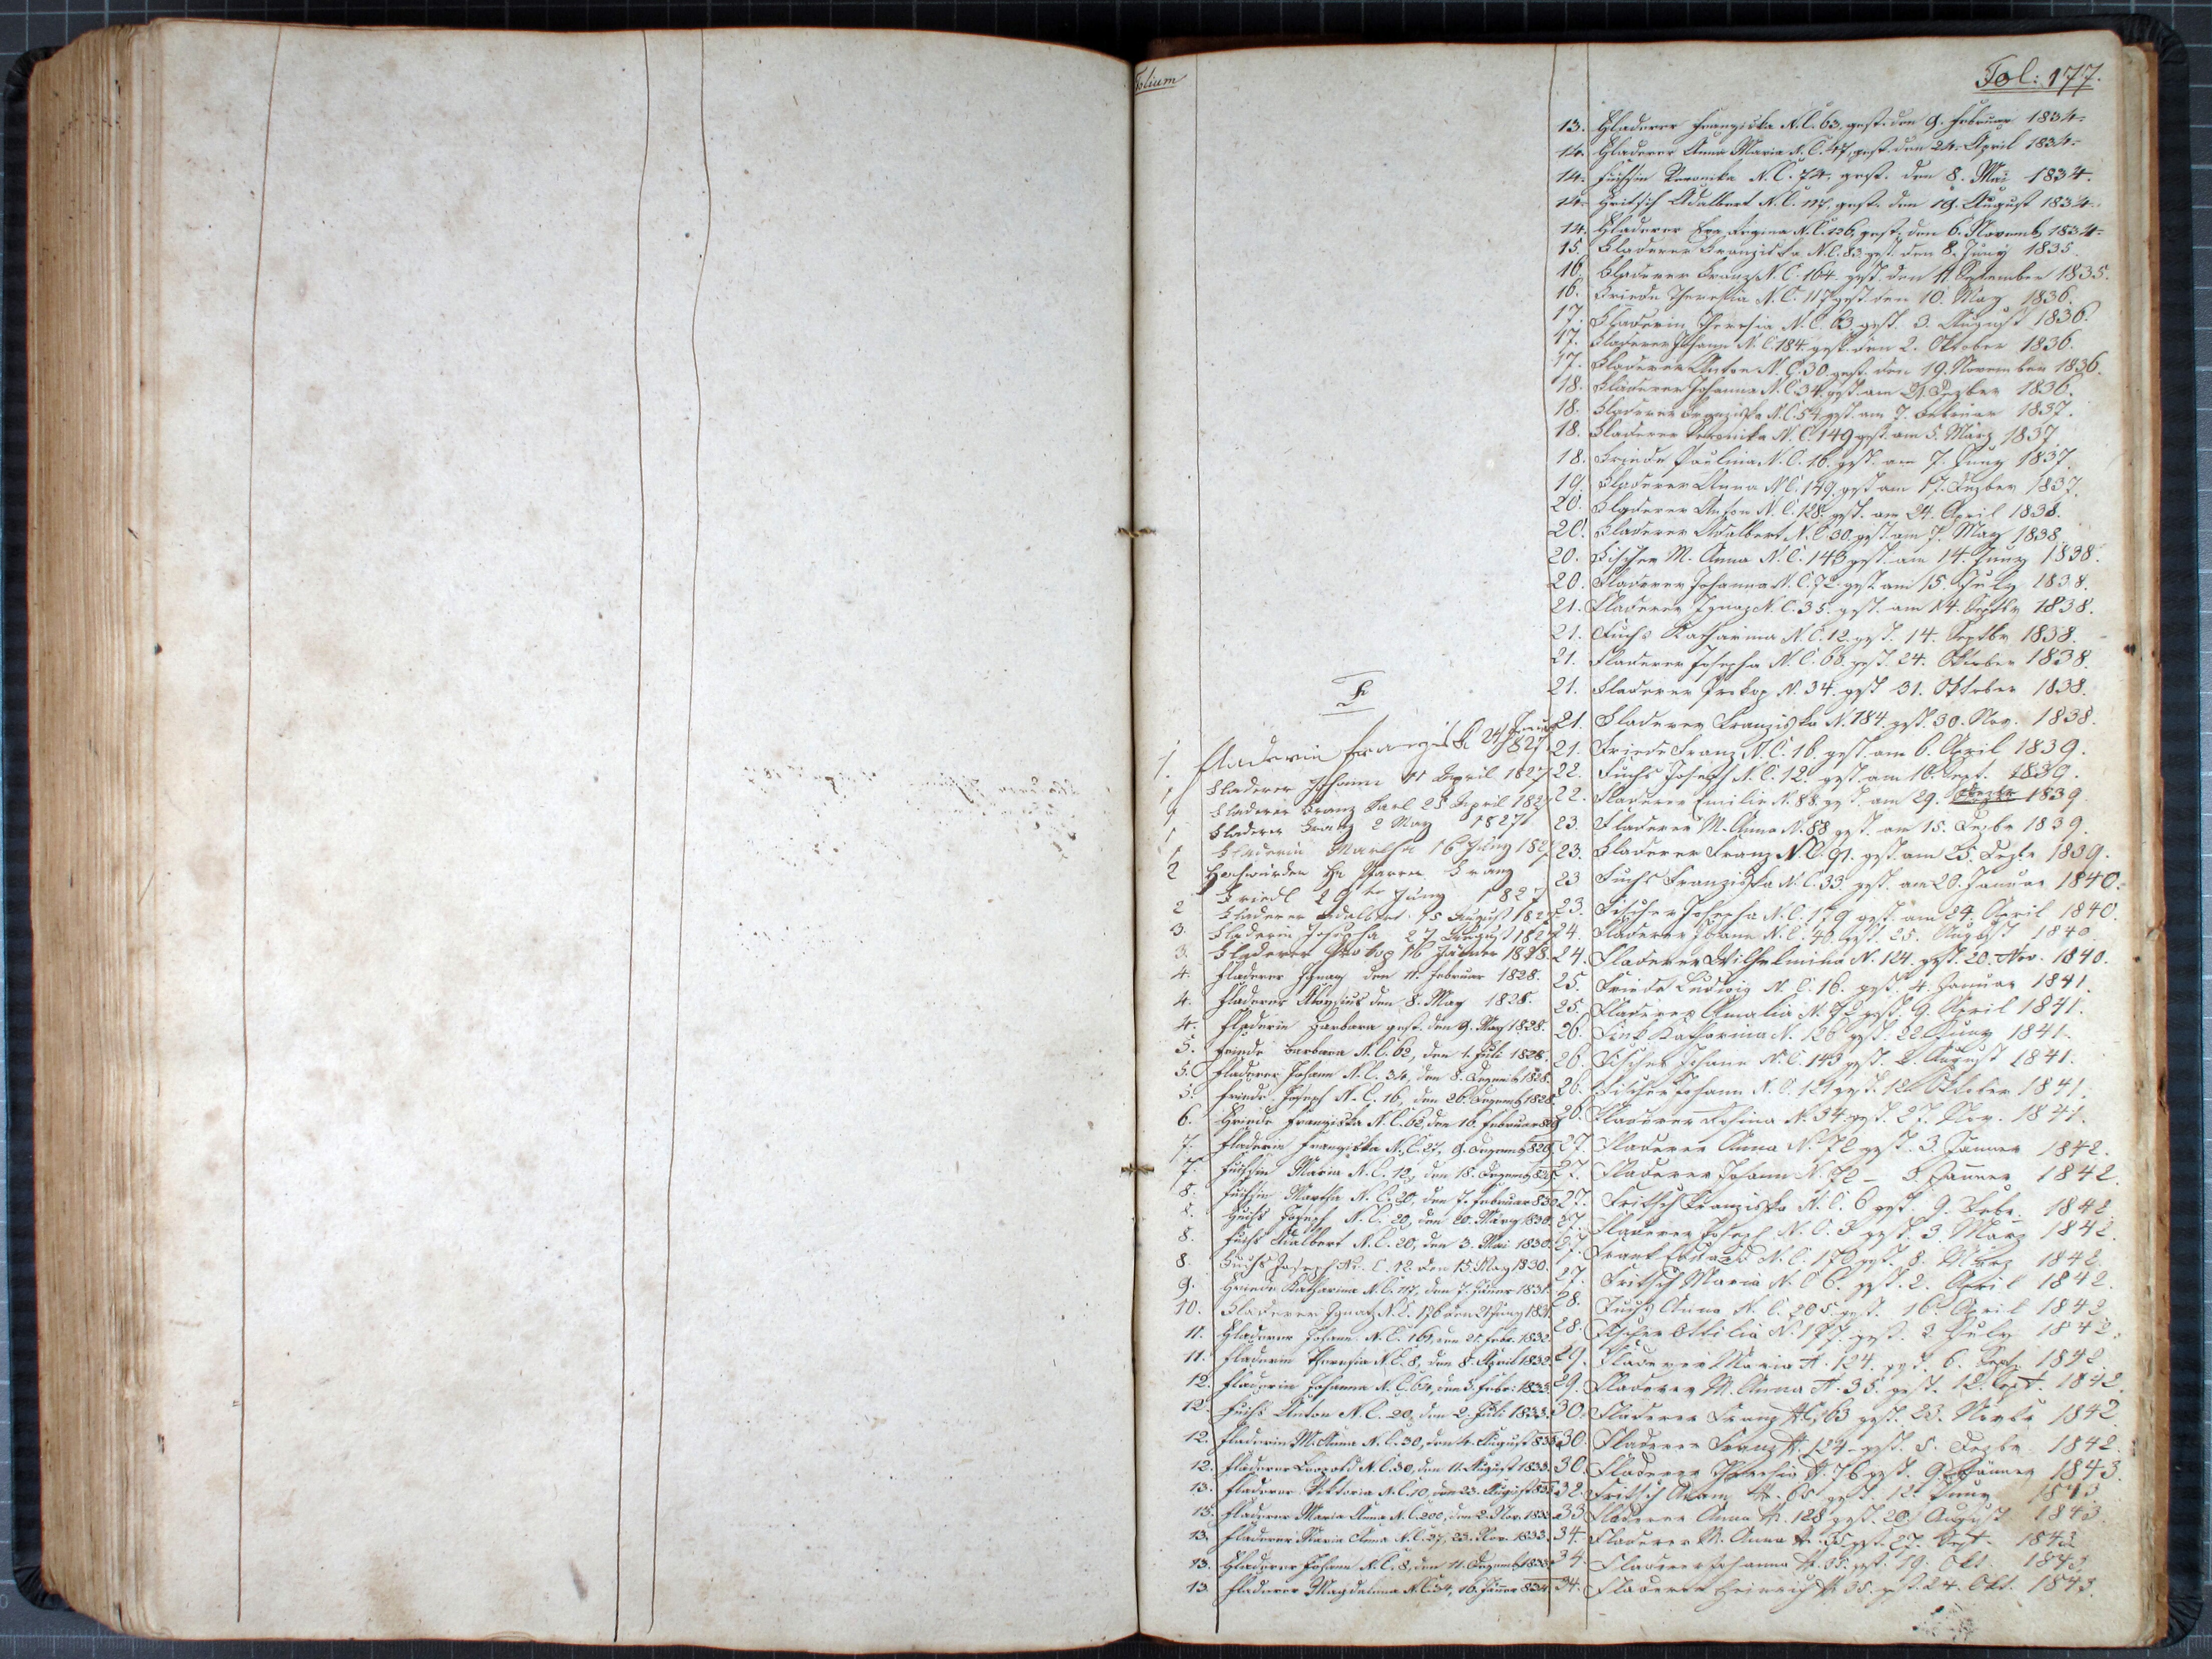 Folium
Fol: 177.
F
1. Fladerin Franziska 24 1827
1 Fladerer Johann 11 April 1827
1 Fladerer Franz Karl 25 April 1827
1 Fladerer Franz 2 May 1827
1 Fladerin Martha 16 Juny 1827
2 Hochwürden H. Pfarrer Franz
Friedl 29 Juny 1827
2 Fladerer Adalbert 15 August 1827
3. Fladerin Josepha 27 August 1827
3. Fladerer Prokop 16 Jänner 1828.
4. Fladerer Ignaz den 11. Februar 1828.
4. Fladerer Aloysius den 8. May 1828.
4. Fladerin Barbara gest. den 9. May 1828.
5. Friede Barbara N.C. 62, den 1. Juli 1828.
5. Fladerer Johann N.C. 34, den 8. Dezemb. 1828.
5. Friede Joseph N.C. 16, den 26. Dezemb. 1828.
6. Friede Franziska N.C. 62, den 16. Februar 829
7. Fladerin Franziska N.C. 27, 9. Dezemb. 829
7. Fuchsin Maria N.C. 12, den 18. Dezemb. 829
8. Fuchsin Martha N.C. 20, den 7. Februar 830
8. Fuchs Joseph N.C. 20, den 20. März 1830.
8. Fuchs Adalbert N.C. 20, den 3. Mai 1830.
8. Fuchs Joseph N. C. 12 den 15. May 1830.
9. Friede Katharina N.C. 117, den 7. Jäner 1831.
10. Fladerer Ignatz N.C. 176 den 21 Juny 1831.
11. Fladerer Johann N.C. 161, den 21. Febr. 1832
11. Fladerin Theresia N.C. 8, den 8. April 1832.
12. Fladerin Johanna N.C. 64, den 5. Febr. 1833.
12. Fuchs Anton N.C. 20, den 2. Juli 1833.
12. Fladerin M. Anna N.C. 30, den 4. August 833
12. Fladerer Leopold N.C. 30, den 11. August 1833.
13. Fladerer Viktoria N.C. 10, den 23. August 833
13. Fladerer Maria Anna N.C. 200, den 2. Nov. 1833
13. Fladerer Maria Anna N.C. 27, 23. Nov. 1833.
13. Fladerer Johann N.C. 8, den 11. Dezemb. 1833
13 Fladerer Magdalena N.C. 34, 16. Jäner 834.
13. Fladerer Franziska N.C. 63, gest. den 9. Februar 1834.
14. Fladerer Anna Maria N.C. 47, gest. den 24. April 1834.
14. Fuchsin Veronika N.C. 74, gest. den 8. Mai 1834.
14. Fritsch Adalbert N.C. 117, gest. den 19. August 1834.
14. Fladerer Eva Regina N.C. 136, gest. den 6. Novemb. 1834.
15. Fladerer Franziska N.C. 83. gest. den 8. Juny 1835.
16. Fladerer Franz N.C. 164. gest. den 11 September 1835.
16. Friede Theresia N.C. 117 gest. den 10. May 1836.
17. Fladerin Theresia N.C. 63. gest. 3. August 1836.
17. Fladerer Johann N.C. 184. gest. den 2. Oktober 1836.
17. Fladerer Anton N.C. 30. gest. den 19. November 1836.
18. Fladerer Johanna N.C. 34. gest. am 21. Dezber 1836.
18. Fladerer Franziska N.C. 54. gest. am 7. Februar 1837.
18. Fladerer Veronika N.C. 149 gest. am 5. März 1837
18. Friede Paulina N.C. 16. gest. am 7. Juny 1837.
19. Fladerer Anna N.C. 149. gest am 17. Dezber 1837.
20. Fladerer Anton N.C. 128. gest. am 24. April 1838.
20. Fladerer Adalbert N.C. 30. gest. am 7. May 1838.
20. Fischer M. Anna N.C. 143 gest. am 14. Juny 1838.
20. Fladerer Johanna N.C. 72. gest. am 15. July 1838.
21. Fladerer Ignaz N.C. 35. gest. am 14. Septbr 1838.
21. Fuchs Katharina N.C. 12. gest. 14. Septbr 1838.
21. Fladerer Josepha N.C. 68. gest. 24. Oktober 1838.
21. Fladerer Prokop N. 34. gest 31. Oktober 1838.
21. Fladerer Franziska N. 184. gest. 30. Nov. 1838.
21. Friede Franz N.C. 16. gest. am 6. April 1839.
22. Fuchs Joseph N.C. 12. gest. am 10. Sept. 1839.
22. Fladerer Emilie N. 88. gest. am 29. 1839
23. Fladerer M. Anna N. 88 gest. am 15. Dezbr 1839.
23. Fladerer Franz N.C. 91. gest. am 25. Dezbr 1839.
23 Fuchs Franziska N.C. 33. gest. am 20. Januar 1840.
23. Fischer Josepha N.C. 179 gest. am 24. April 1840.
24. Fladerer Johann N.C. 40. gest. 25. August 1840
24. Fladerer Wilhelmina N. 124. gest. 20. Nov. 1840.
25. Friede Ludwig N.C. 16. gest. 4. Januar 1841.
25. Fladerer Amalia N. 72 gest. 9. April 1841.
26. Fink Katharina N. 126 gest. 22 Juny 1841.
26. Fischer Johann N.C. 143 gest. 2. August 1841.
26. Fischer Johann N.C. 121 gest. 12. Oktober 1841.
26. Fladerer Rosina N. 34. gest. 27. Nov. 1841.
27. Fladerer Anna N. 72 gest. 3 Januar 1842.
27. Fladerer Johann N. 72 – 5. Januar 1842.
27. Fritsch Franziska N.C. 6 gest. 9. Febr. 1842
27. Fladerer Joseph N.C. 3 gest. 3 März 1842.
27. Frank Eduard N.C. 172 gest. 8. März 1842
27. Fritsch Maria N.C. 6. gest. 2. April 1842.
28. Fuchs Anna N.C. 205. gest. 16. April 1842
28. Fischer Ottilia N. 177. gest. 2. July 1842.
29. Fladerer Maria N. 124. gest. 6. Sept. 1842.
29. Fladerer M. Anna N. 35. gest. 12. Sept. 1842.
30. Fladerer Franz N.C. 63 gest. 23. Novbr 1842
30. Fladerer Franz N. 124. gest. 5. Dezbr 1842.
30. Fladerer Theresia N. 76 gest. 9. Jänner 1843.
32. Fritsch Adam N. 65 gest. 12. Juny 1843
33 Fladerer Anna N. 128 gest. 20. August 1843.
34. Fladerer M. Anna N. 35 gest. 27. Sept. 1843
34. Fladerer Johanna N. 35. gest. 19. Okt. 1843.
34. Fladerer Heinrich N. 35. gest. 24. Okt. 1843.